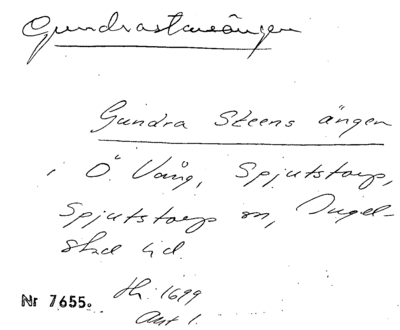 Gundrastensängen
Gundra Steens ängen
i Ö. Vång, Spjutstorp,
Spjutstorp sn, Ingel-
stad hd.
Nr 7655. Hh. 1699
Akt 1.